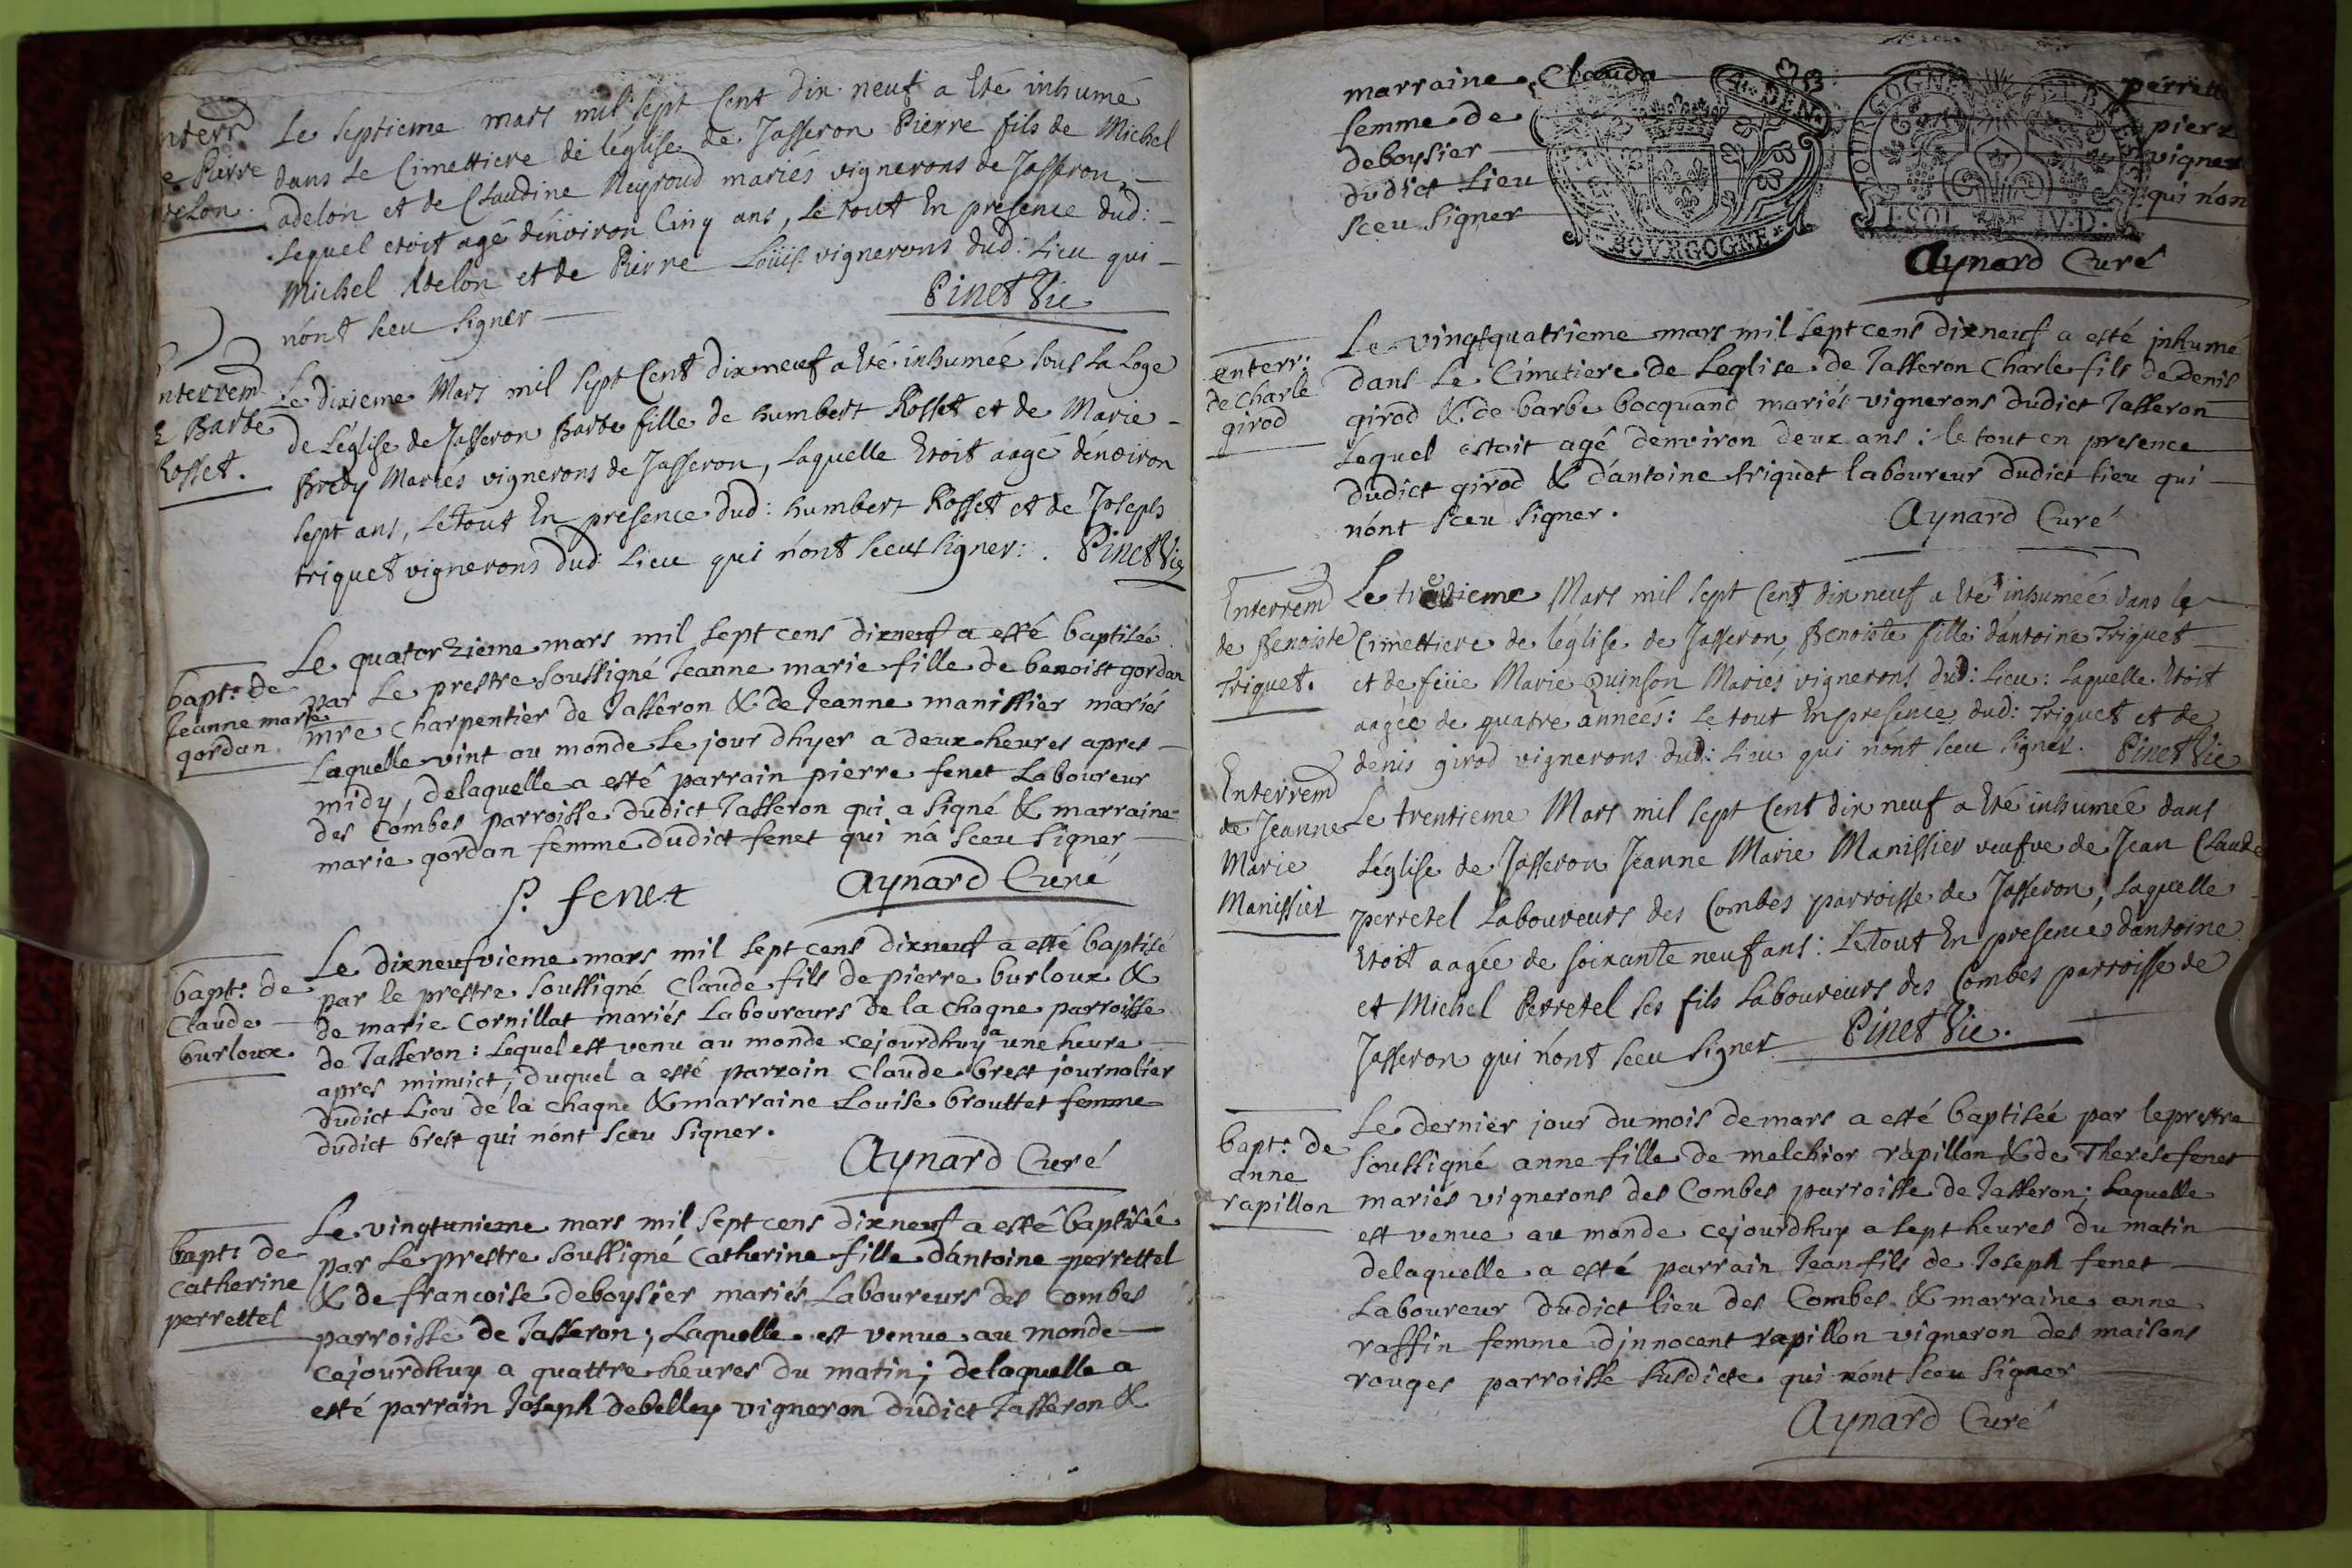 Enterrem
Le septieme mars mil sept Cent dix neuf a Eté inhumé
de Pierre
dans Le Cimettiere de léglise de Jasseron Pierre fils de Michel
adelon et de Claudine Neyroud mariés vignerons de Jasseron
Lequel etoit agé dénviron Cinq ans, Le tout En présence dud:
Michel Adelon et de Pierre Loüis vignerons dud: Lieu qui
nónt sceu signer
Pinet Vic
Enterrem
de Barbe
Rosset.
Le dixieme Mars mil sept Cent dix neuf a Eté inhumeé sous La Loge
de Léglise de Jasseron Barbe fille de humbert Rosset et de Marie
Bredy Mariés vignerons de Jasseron, Laquelle Etoit aagé dénviron
sept ans, Le tout En presence dud: humbert Rosset et de Joseph
triquet vignerons dud: Lieu qui nónt sceu signer: Pinet Vic
bapt: de
Jeanne marie
gordan
Le quatorzieme mars mil sept cens dixneuf a esté baptisée
par Le prestre soussigné Jeanne marie fille de benoist gordan
mre charpentier de Jasseron & de Jeanne manissier mariés
Laquelle vint au monde Le jour dhyer a deux heures apres
midy, delaquelle a esté parrain pierre fenet Laboureur
des Combes parroisse dudict Jasseron qui a signé & marraine
marie gordan femme dudict fenet qui ná sceu signer
p. fenet
Aynard Curé
bapt: de
Claude
burloux.
Le dixneufvieme mars mil sept cens dixneuf a esté baptisé
par le prestre soussigné Claude fils de pierre burloux &
de marie Cornillat mariés Laboureurs de la Chagne parroisse
de Jasseron: Lequel est venu au monde cejourdhuy a une heure
apres minuict, duquel a esté parrain Claude brest journalier
dudict Lieu de la Chagne & marraine Louise brouttet femme
dudict brest qui nónt sceu signer.
Aynard Curé
bapt: de
catherine
perrettel
Le vingtunieme mars mil sept cens dixneuf a esté baptisée
par Le prestre soussigné Catherine fille dántoine perrettel
& de francoise deboysier mariés Laboureurs des Combes
parroisse de Jasseron; Laquelle est venue au monde
cejourdhuy a quattre heures du matin; delaquelle a
esté parrain Joseph debelley vigneron dudict Jasseron &
marraine Clauda perrett
femme de pierr
deboysier vigner
dudict Lieu qui nón
sceu signer
G. DEN.
BOVRGOGNE
I. SOL IV. D.
Aynard Curé
enterr:
de Charle
girod
Le vingtquatrieme mars mil sept cens dixneuf a esté jnhumé
dans Le Cimetiere de Leglise de Jasseron Charle fils de Denis
girod & de barbe bocquand mariés vignerons dudict Jasseron
Léquel estoit agé denviron deux ans: le tout en presence
dudict girod & dántoine triquet laboureur dudict lieu qui
nónt sceu signer.
Aynard Curé
Enterrem
de Benoiste
Triquet.
Le Mars mil sept Cent dix neuf a Eté inhumeé dans le
Cimettiere de léglise de Jasseron, Benoiste fille dántoine Triquet
et de feüe Marie Quinson Mariés vignerons dud: Lieu: Laquelle Etoit
aagée de quatre anneés: Le tout En presence dud: Triquet et de
denis girod vignerons dud: Lieu qui nónt sceu signer. Pinet Vic
Enterrem
de Jeanne
Marie
Manissier
Le trentieme Mars mil sept Cent dix neuf a Eté inhumeé dans
Léglise de Jasseron Jeanne Marie Manissier veufve de Jean Claude
perretel Laboureurs des Combes parroisse de Jasseron, Laquelle
Etoit aagée de soixante neuf ans: Le tout En presence dántoine
et Michel Perretel ses fils Laboureurs des Combes parroisse de
Jasseron qui nónt sceu signer Pinet Vic.
bapt: de
anne
rapillon
Le dernier jour du mois de mars a esté baptiseé par leprestre
soussigné anne fille de melchior rapillon & de Therese fenet
mariés vignerons des Combes parroisse de Jasseron; Laquelle
est venue au monde cejourdhuy a sept heures du matin
delaquelle a esté parrain Jean fils de Joseph fenet
Laboureur dudict lieu des Combes & marraine anne
raffin femme djnnocent rapillon vigneron des maisons
rouges parroisse susdicte qui nónt sceu signer
Aynard Curé